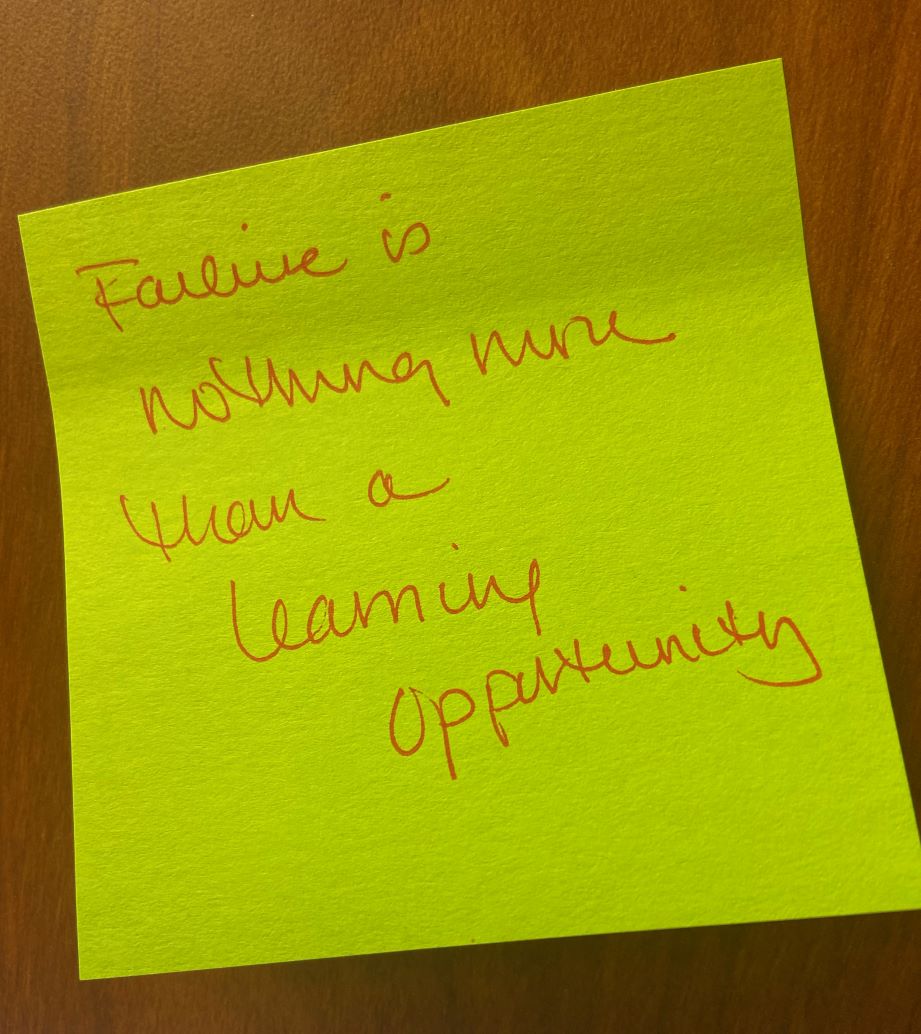 Failure is
nothing more
than a
learning
opportunity